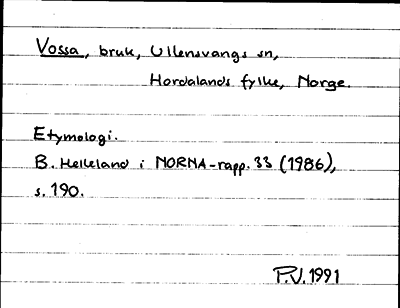 Vossa, bruk, Ullensvangs sn,
Hordalands fylke, Norge.
Etymologi.
B. Helleland i NORNA-rapp. 33 (1986),
s. 190.
P.V. 1991